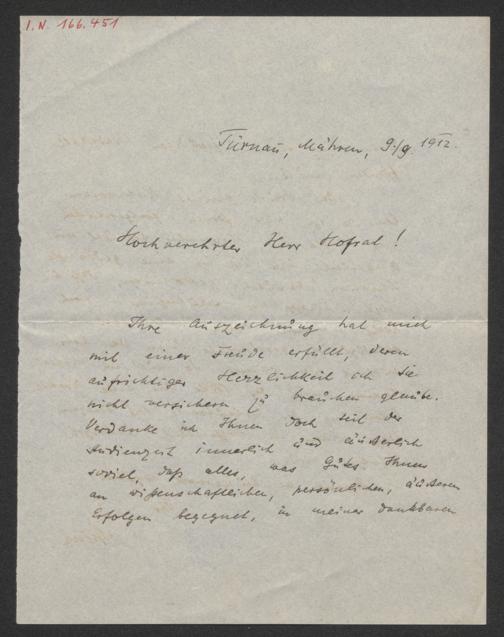 I.N. 166.451
Türnau, Mähren, 9./9. 1912.
Hochverehrter Herr Hofrat!
Ihre Auszeichnung hat mich
mit einer Freude erfüllt, deren
aufrichtiger Herzlichkeit ich Sie
nicht versichern zu brauchen glaube.
Verdanke ich Ihnen doch seit der
Studienzeit innerlich und äusserlich
soviel, daß alles, was Gutes Ihnen
an wißenschaftlichen, persönlichen, äusseren
Erfolgen begegnet, in meiner dankbaren